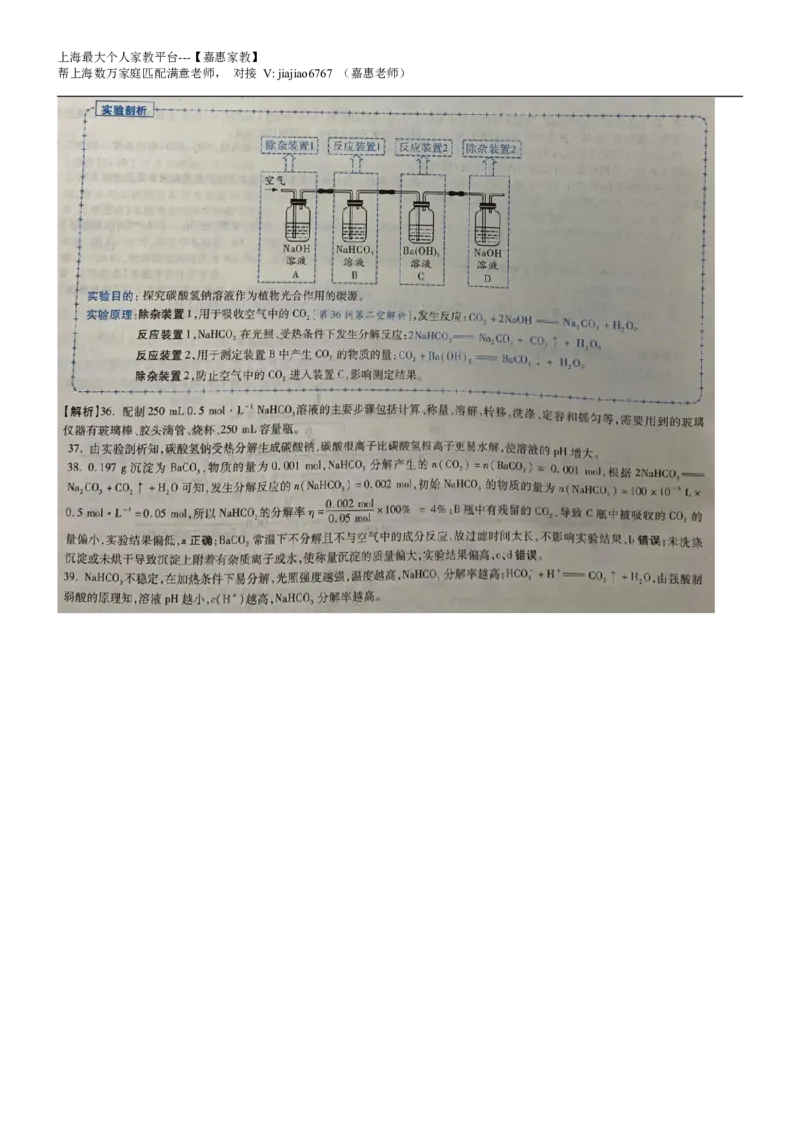 上海最大个人家教平台---【嘉惠家教】
帮上海数万家庭匹配满意老师， 对接 V: jiajiao6767 （嘉惠老师）
实验剖析
除杂装置1 反应装置1 反应装置2 除杂装置2
空气
NaOH NaHCO₃ Ba(OH)₂ NaOH
溶液 溶液 溶液 溶液
A B C D
实验目的：探究碳酸氢钠溶液作为植物光合作用的碳源。
实验原理：除杂装置1，用于吸收空气中的CO₂[第36问第二空解析]，发生反应：CO₂+2NaOH══Na₂CO₃+H₂O。
反应装置1，NaHCO₃在光照、受热条件下发生分解反应：2NaHCO₃══Na₂CO₃+CO₂↑+H₂O。
反应装置2，用于测定装置B中产生CO₂的物质的量：CO₂+Ba(OH)₂══BaCO₃↓+H₂O。
除杂装置2，防止空气中的CO₂进入装置C，影响测定结果。
【解析】36. 配制250 mL 0.5 mol·L⁻¹ NaHCO₃溶液的主要步骤包括计算、称量、溶解、转移、洗涤、定容和摇匀等，需要用到的玻璃
仪器有玻璃棒、胶头滴管、烧杯、250 mL容量瓶。
37. 由实验剖析知，碳酸氢钠受热分解生成碳酸钠，碳酸根离子比碳酸氢根离子更易水解，使溶液的pH增大。
38. 0.197 g沉淀为BaCO₃，物质的量为0.001 mol，NaHCO₃分解产生的n(CO₂)=n(BaCO₃)=0.001 mol，根据2NaHCO₃══
Na₂CO₃+CO₂↑+H₂O可知，发生分解反应的n(NaHCO₃)=0.002 mol，初始NaHCO₃的物质的量为n(NaHCO₃)=100×10⁻³ L×
0.5 mol·L⁻¹=0.05 mol，所以NaHCO₃的分解率η=0.002 mol/0.05 mol×100%=4%；B瓶中有残留的CO₂，导致C瓶中被吸收的CO₂的
量偏小，实验结果偏低，a正确；BaCO₃常温下不分解且不与空气中的成分反应，故过滤时间太长，不影响实验结果，b错误；未洗涤
沉淀或未烘干导致沉淀上附着有杂质离子或水，使称量沉淀的质量偏大，实验结果偏高，c、d错误。
39. NaHCO₃不稳定，在加热条件下易分解，光照强度越强，温度越高，NaHCO₃分解率越高；HCO₃⁻+H⁺══CO₂↑+H₂O，由强酸制
弱酸的原理知，溶液pH越小，c(H⁺)越高，NaHCO₃分解率越高。